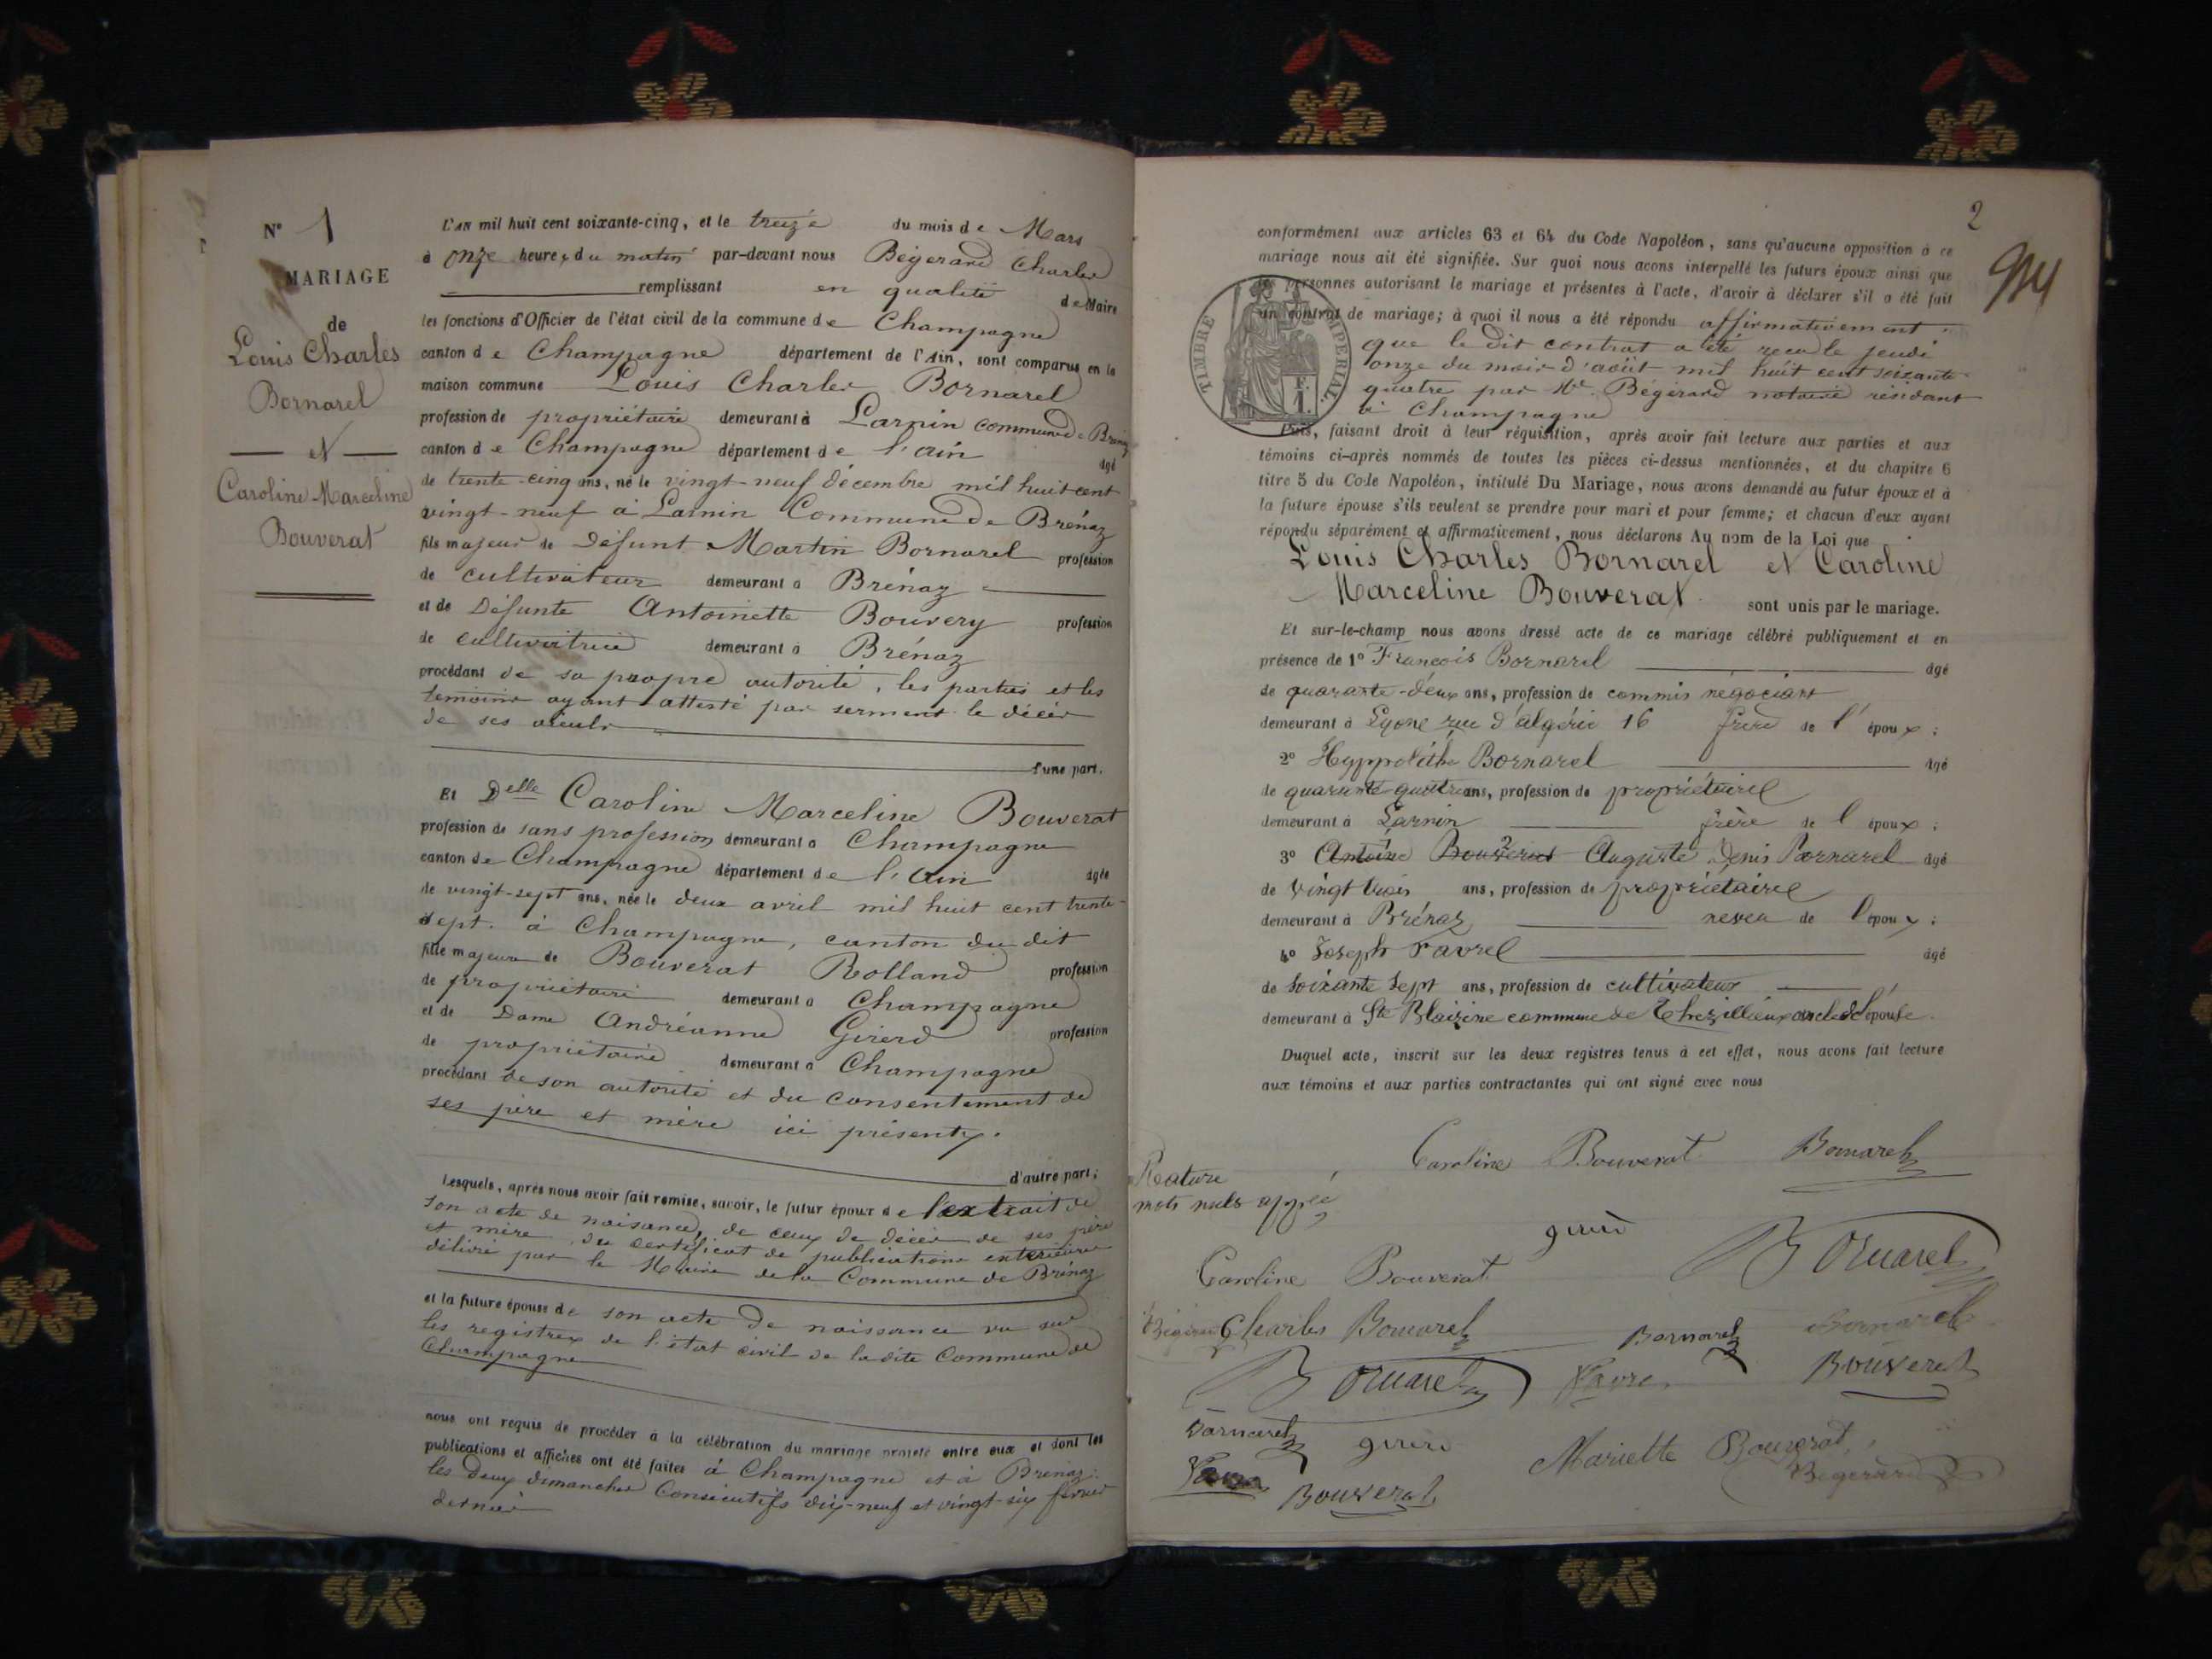 N° 1
MARIAGE
de
Louis Charles
Bornarel
et
Caroline Marceline
Bouverat
L'AN mil huit cent soixante-cinq, et le treize du mois de Mars
à onze heures du matin par-devant nous Bégerard Charles
remplissant en qualité de Maire
les fonctions d'Officier de l'état civil de la commune de Champagne
canton de Champagne département de l'Ain, sont comparus en la
maison commune Louis Charles Bornarel
profession de propriétaire demeurant à Larnin commune de Brénaz
canton de Champagne département de l'ain âgé
de trente-cinq ans, né le vingt-neuf décembre mil huit cent
vingt-neuf à Larnin Commune de Brénaz
fils majeur de Défunt Martin Bornarel profession
de cultivateur demeurant à Brénaz
et de Défunte Antoinette Bouvery profession
de cultivatrice demeurant à Brénaz
procédant de sa propre autorité, les parties et les
temoins ayant attesté par serment le décès
de ses aïeuls
d'une part.
Et Delle Caroline Marceline Bouverat
profession de sans profession demeurant à Champagne
canton de Champagne département de l'Ain âgée
de vingt-sept ans, née le deux avril mil huit cent trente-
sept. à Champagne, canton du dit
fille majeure de Bouverat Rolland profession
de propriétaire demeurant à Champagne
et de Dame Andréanne Girerd profession
de propriétaire demeurant à Champagne
procédant de son autorité et du consentement de
ses père et mère ici présents.
d'autre part;
Lesquels, après nous avoir fait remise, savoir, le futur époux de l'extrait de
son acte de naissance, de ceux de décès de ses père
et mère, du certificat de publications extérieures
délivré par le Maire de la Commune de Brénaz
et la future épouse de son acte de naissance vu sur
les registres de l'état civil de la dite Commune de
Champagne
nous ont requis de procéder à la célébration du mariage projeté entre eux et dont les
publications et affiches ont été faites à Champagne et à Brénaz
les deux dimanches Consécutifs dix-neuf et vingt-six février
dernier
2
conformément aux articles 63 et 64 du Code Napoléon, sans qu'aucune opposition à ce
mariage nous ait été signifiée. Sur quoi nous avons interpellé les futurs époux ainsi que
les personnes autorisant le mariage et présentes à l'acte, d'avoir à déclarer s'il a été fait
un contrat de mariage; à quoi il nous a été répondu affirmativement
que le dit contrat a été reçu le jeudi
onze du mois d'août mil huit cent soixante-
quatre par Me Bégerard notaire résidant
à Champagne
TIMBRE IMPERIAL
Puis, faisant droit à leur réquisition, après avoir fait lecture aux parties et aux
témoins ci-après nommés de toutes les pièces ci-dessus mentionnées, et du chapitre 6
titre 5 du Code Napoléon, intitulé Du Mariage, nous avons demandé au futur époux et à
la future épouse s'ils veulent se prendre pour mari et pour femme; et chacun d'eux ayant
répondu séparément et affirmativement, nous déclarons Au nom de la Loi que
Louis Charles Bornarel et Caroline
Marceline Bouverat sont unis par le mariage.
Et sur-le-champ nous avons dressé acte de ce mariage célébré publiquement et en
présence de 1° François Bornarel âgé
de quarante-deux ans, profession de commis négociant
demeurant à Lyone rue d'algérie 16 frère de l'époux;
2° Hyppolithe Bornarel âgé
de quarante quatre ans, profession de propriétaire
demeurant à Larnin frère de l époux;
3° Antoine Bouverat Auguste Denis Bornarel âgé
de vingt trois ans, profession de propriétaire
demeurant à Brénaz neveu de l'époux;
4° Joseph Favrel âgé
de soixante sept ans, profession de cultivateur
demeurant à Ste Blaizine commune de Thezillieux oncle de l'épouse.
Duquel acte, inscrit sur les deux registres tenus à cet effet, nous avons fait lecture
aux témoins et aux parties contractantes qui ont signé avec nous
Caroline Bouverat Bornarel
mots nuls
girerd
Caroline Bouverat Bornarel
Charles Bornarel Bornarel Bornarel
Bornarel Favre Bouverat
Bornarel girerd Mariette Bouverat
Bouverat Bégerard